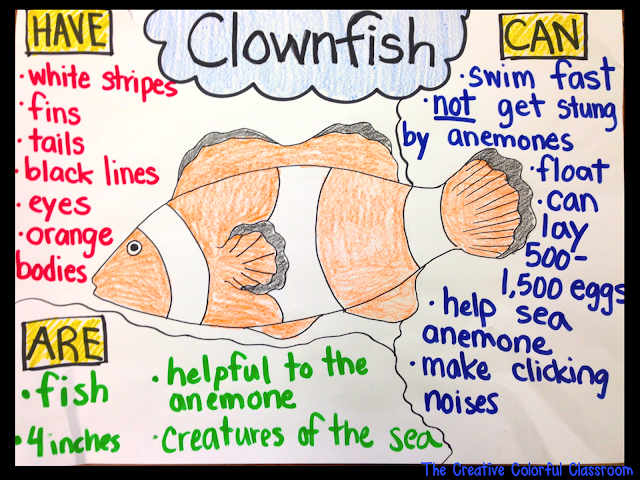 Clownfish
HAVE
· white stripes
· fins
· tails
· black lines
· eyes
· orange
bodies
CAN
· swim fast
· not get stung
by anemones
· float
· can
lay
500-
1,500 eggs
· help sea
anemone
· make clicking
noises
ARE
· fish
· 4 inches
· helpful to the
anemone
· creatures of the sea
The Creative Colorful Classroom